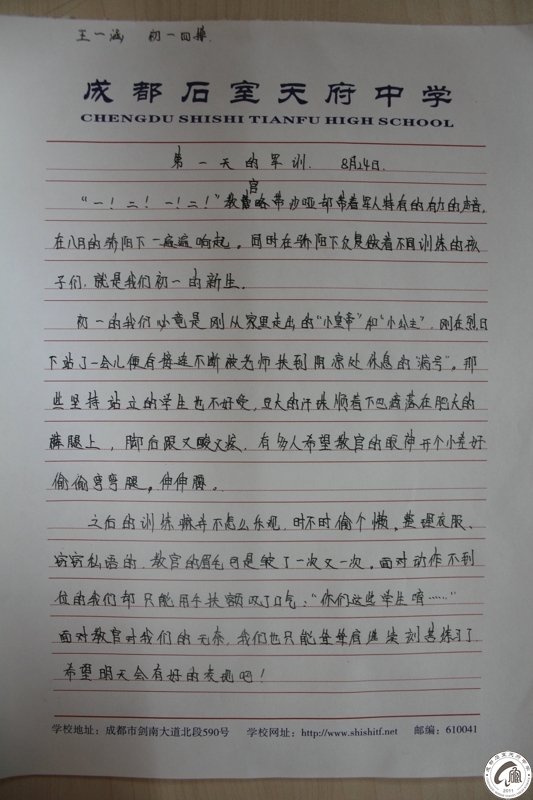 王一涵 初一四班
成都石室天府中学
CHENGDU SHISHI TIANFU HIGH SCHOOL
第一天的军训. 8月24日.
“一！二！一！二！”教官略带沙哑却带着军人特有的有力的声音,
在八月的骄阳下一遍遍响起。同时在骄阳下反复做着不同训练的孩
子们,就是我们初一的新生.
初一的我们毕竟是刚从家里走出的“小皇帝”和“小公主”.刚在烈日
下站了一会儿便有接连不断被老师扶到阴凉处休息的“病号”。那
些坚持站立的学生也不好受,豆大的汗珠顺着下巴滴落在肥大的
裤腿上,脚后跟又酸又疼.有多人希望教官的眼神开个小差好
偷偷弯弯腿。伸伸腰.
之后的训练并不怎么乐观,时不时偷个懒。整理衣服、
窃窃私语的,教官的眉毛可是皱了一次又一次。面对动作不到
位的我们却只能用手扶额叹了口气:“你们这些学生唷……”
面对教官对我们的无奈,我们也只能耸耸肩继续刻苦练习了
希望明天会有好的表现吧！
学校地址：成都市剑南大道北段590号 学校网址：http://www.shishitf.net 邮编：610041
2011